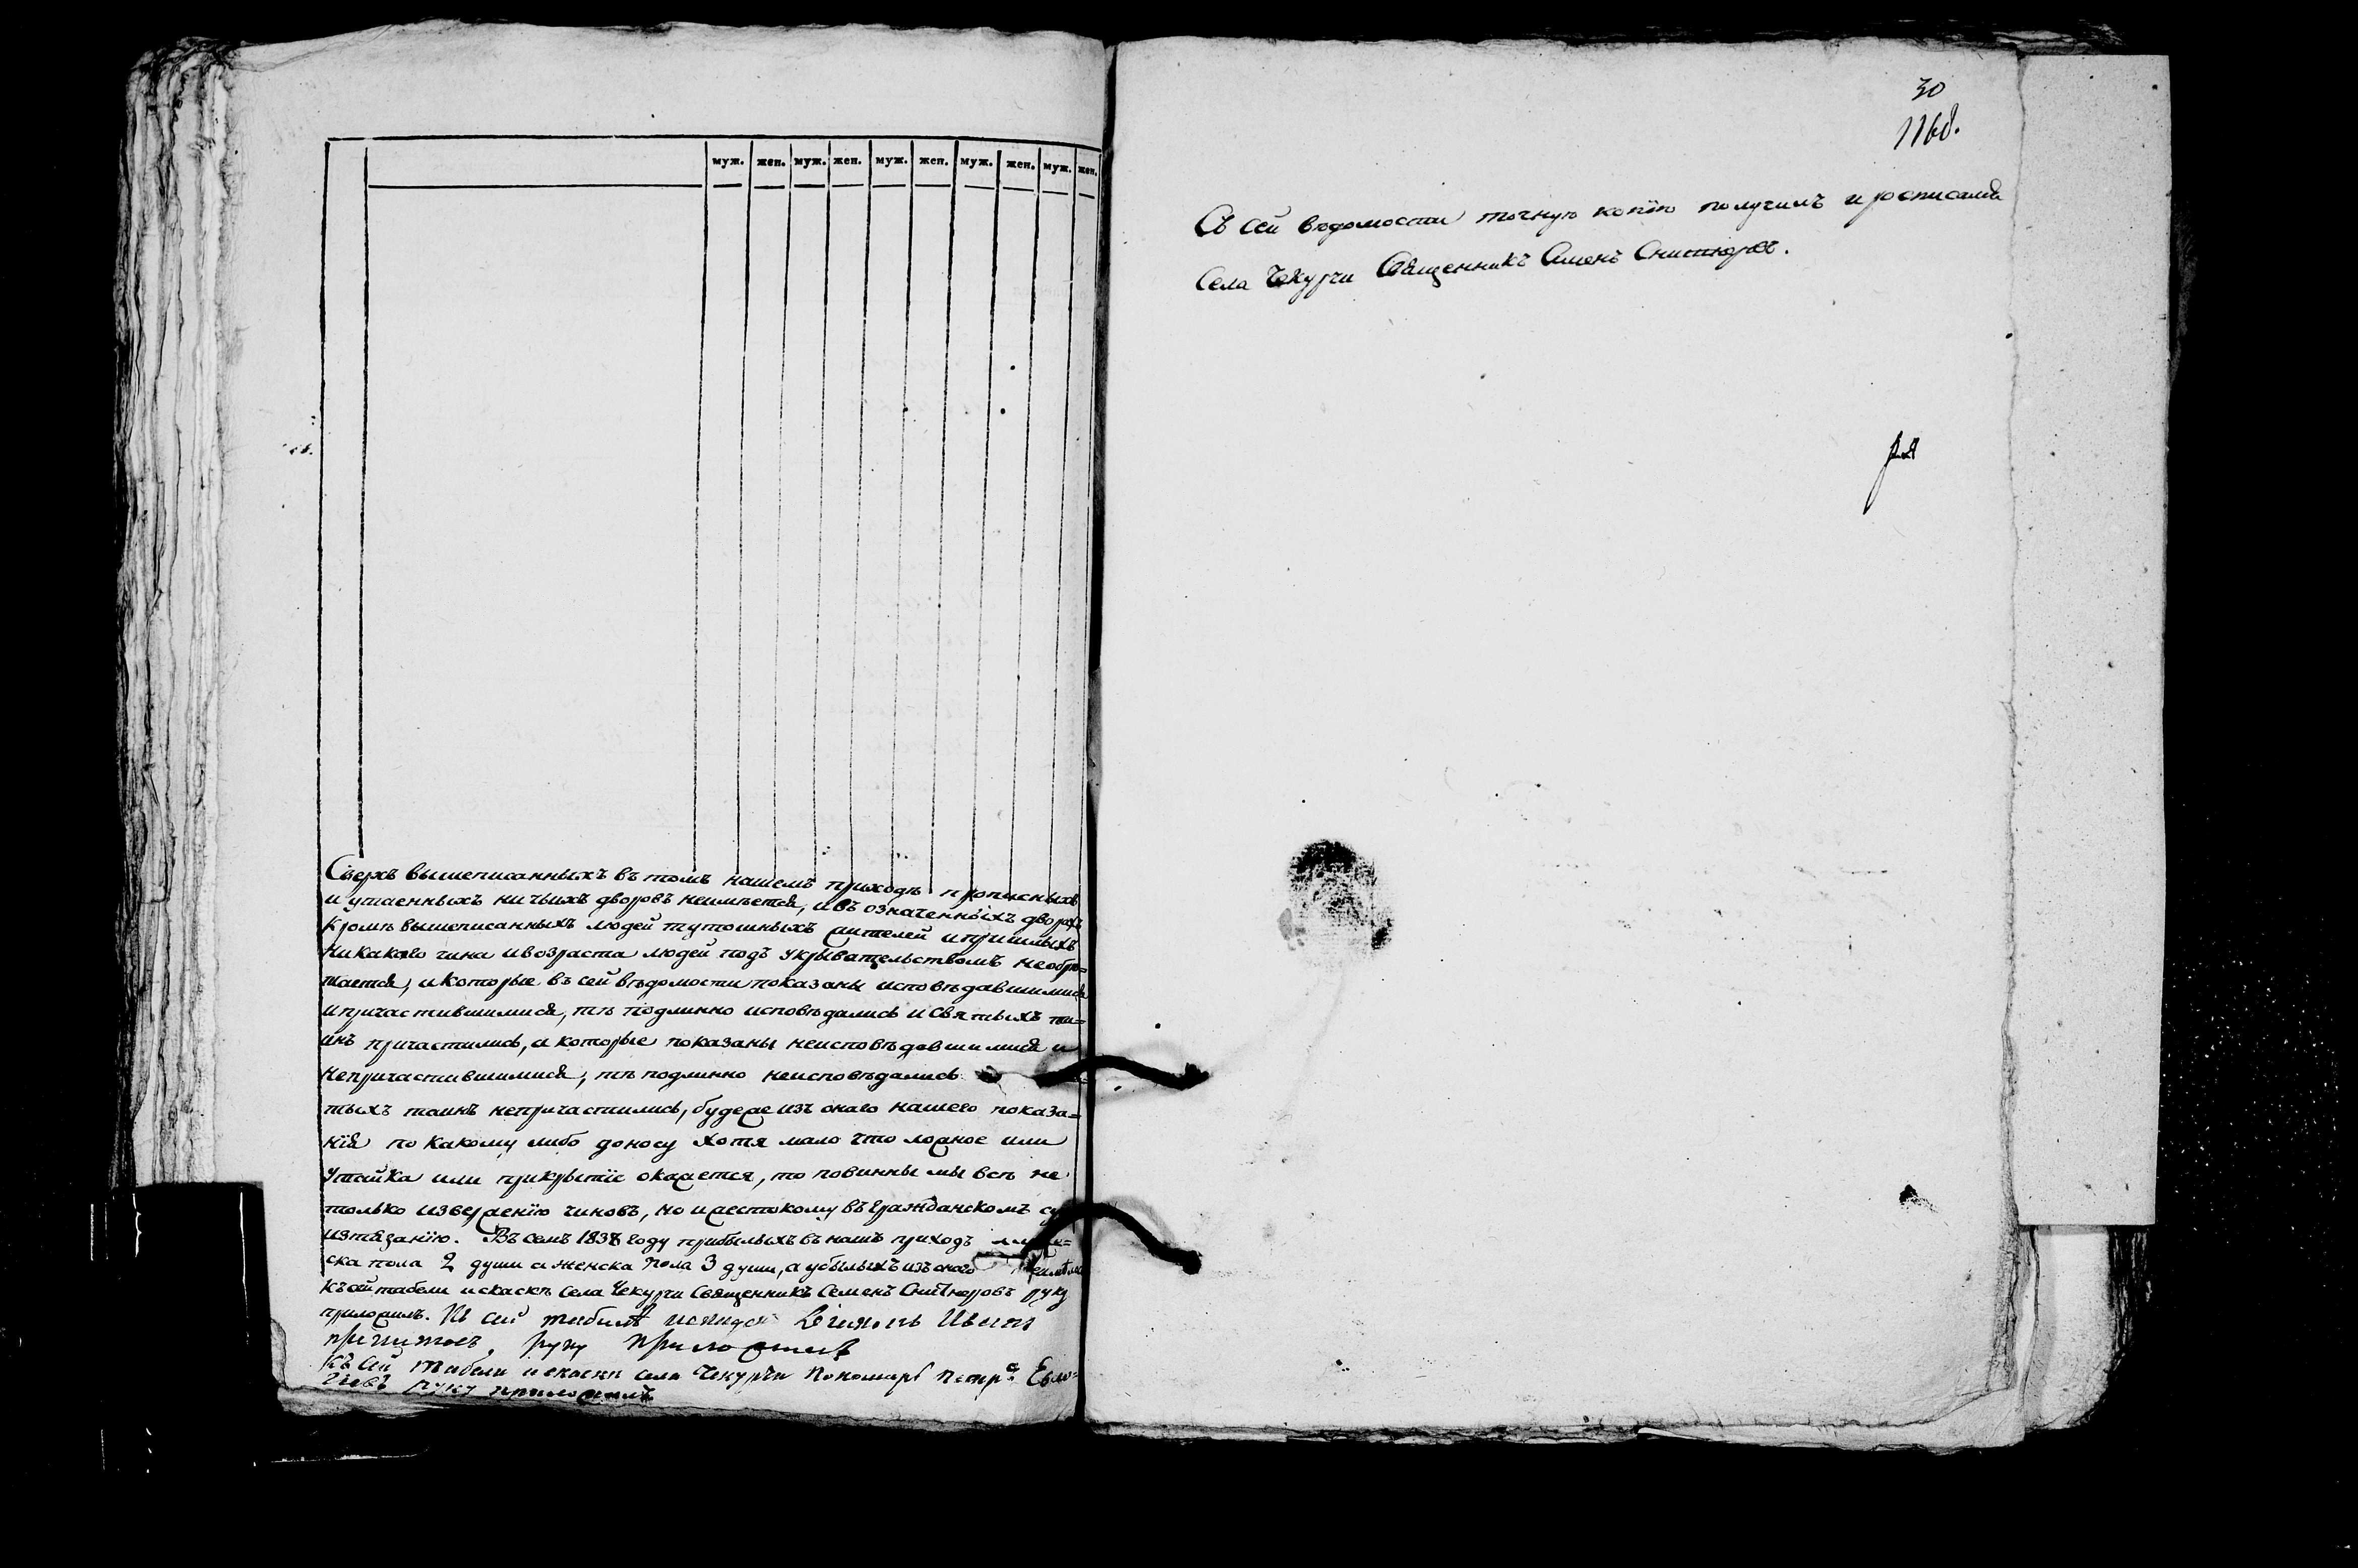 муж. жен. муж. жен. муж. жен. муж. жен. муж. жен.
Сверхъ вышеписанныхъ въ томъ нашемъ приходѣ прописныхъ
и утаенныхъ ничьихъ дворовъ неимѣется, и въ означенныхъ дворахъ
кромѣ вышеписанныхъ людей тутошныхъ жителей и пришлыхъ
никакого чина и возраста людей подъ укрывательствомъ необрѣ=
тается, и которые въ сей вѣдомости показаны исповѣдавшимися
и причастившимися, тѣ подлинно исповѣдались и святыхъ та=
инъ причастились, а которые показаны неисповѣдавшимися и
непричастившимися, тѣ подлинно неисповѣдались
тыхъ таинъ непричастились, будеже изъ онаго нашего показа=
нія по какому либо доносу хотя мало что ложное или
утайка или прикрытіе окажется, то повинны мы всѣ не
только изверженію чиновъ, но и жестокому въ гражданскомъ су
истязанію. Въ семъ 1838 году прибылыхъ въ нашъ приходъ
ска пола 2 души а женска пола 3 души, а убылыхъ изъ онаго
Къ сей табели и скаскѣ села Чекурчи Священникъ Семенъ Снитюровъ руку
приложилъ. Къ сей табелѣ Иванъ
руку приложилъ
Къ сей табели и скаски села Чекурчи Пономарь Петръ Евло=
гіевъ руку приложилъ
30
1168.
Съ сей вѣдомости точную копію получилъ и росписался
Села Чекурчи Священникъ Сименъ Снитюровъ.